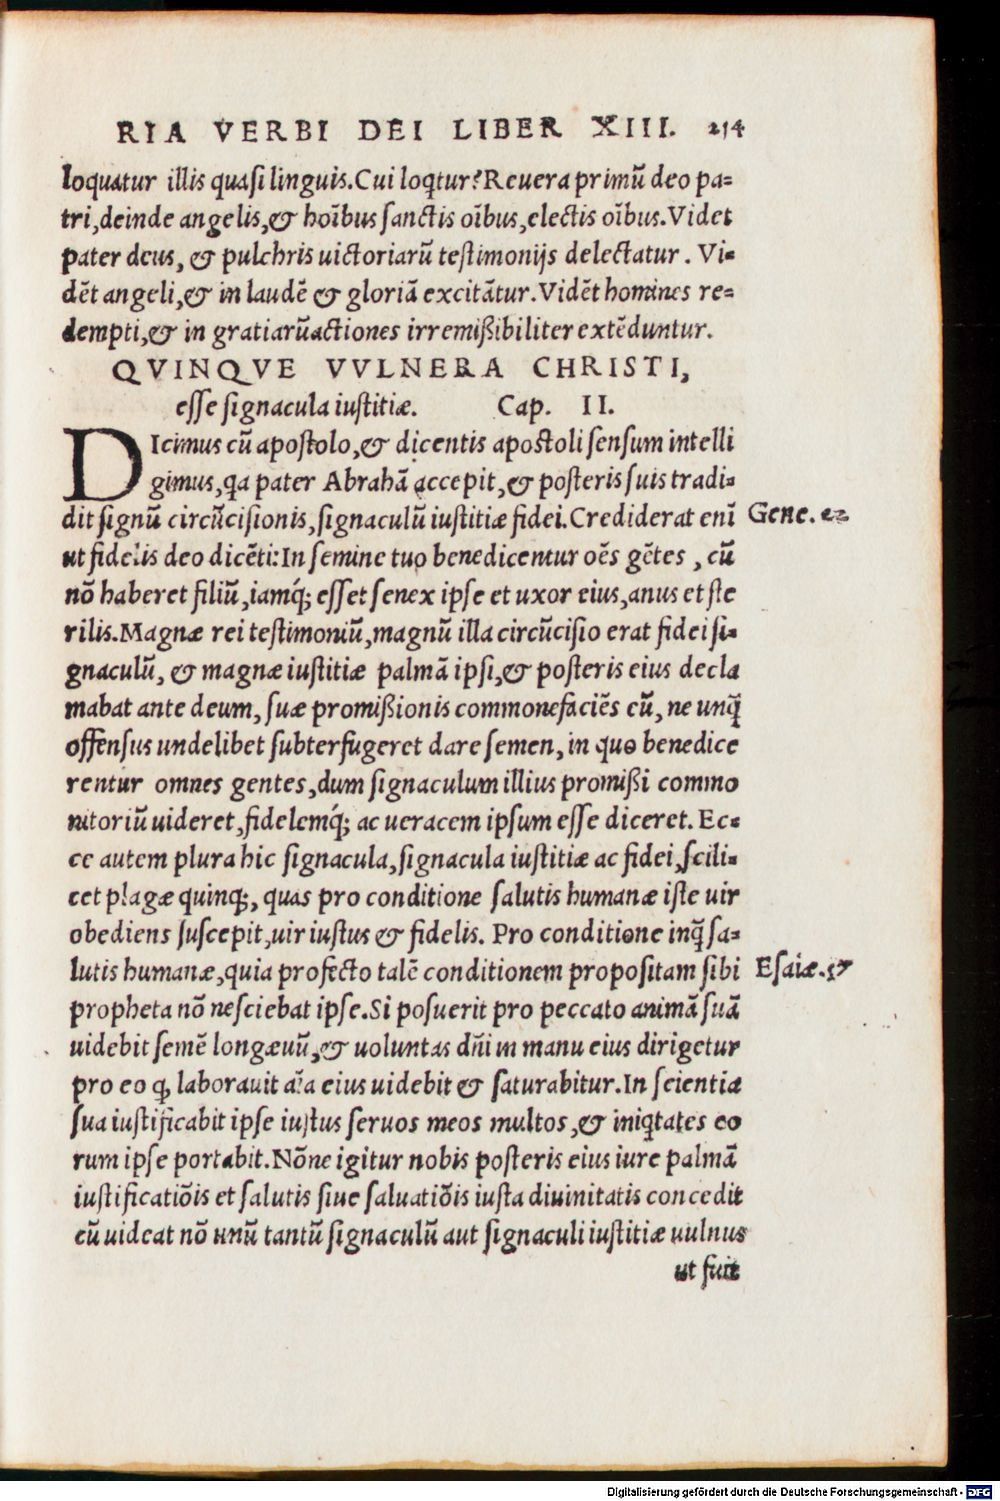 RIA VERBI DEI LIBER XIII. 254
loquatur illis quasi linguis. Cui loq̃tur? Reuera primũ deo pa-
tri, deinde angelis, & hoĩbus sanctis oĩbus, electis oĩbus. Videt
pater deus, & pulchris uictoriarũ testimonijs delectatur. Vi-
dẽt angeli, & in laudẽ & gloriã excitãtur. Vidẽt homines re-
dempti, & in gratiarũactiones irremißibiliter extẽduntur.
QVINQVE VVLNERA CHRISTI,
esse signacula iustitiæ. Cap. II.
DIcimus cũ apostolo, & dicentis apostoli sensum intelli
gimus, qa pater Abrahã accepit, & posteris suis tradi-
dit signũ circũcisionis, signaculũ iustitiæ fidei. Crediderat enĩ
Gene. 22
ut fidelis deo dicẽti: In semine tuo benedicentur oẽs gẽtes, cũ
nõ haberet filiũ, iamq́; esset senex ipse et uxor eius, anus et ste
rilis. Magnæ rei testimoniũ, magnũ illa circũcisio erat fidei si-
gnaculũ, & magnæ iustitiæ palmã ipsi, & posteris eius decla
mabat ante deum, suæ promißionis commonefaciẽs cũ, ne unq̃
offensus undelibet subterfugeret dare semen, in quo benedice
rentur omnes gentes, dum signaculum illius promißi commo
nitoriũ uideret, fidelemq́; ac ueracem ipsum esse diceret. Ec-
ce autem plura hic signacula, signacula iustitiæ ac fidei, scili-
cet plagæ quinq;, quas pro conditione salutis humanæ iste uir
obediens suscepit, uir iustus & fidelis. Pro conditione inq̃ sa-
lutis humanæ, quia profecto talẽ conditionem propositam sibi
Esaiæ. 57
propheta nõ nesciebat ipse. Si posuerit pro peccato animã suã
uidebit semẽ longæuũ, & uoluntas dñi in manu eius dirigetur
pro eo ꝙ laborauit aĩa eius uidebit & saturabitur. In scientia
sua iustificabit ipse iustus seruos meos multos, & iniq̃tates eo
rum ipse portabit. Nõne igitur nobis posteris eius iure palmã
iustificatiõis et salutis siue saluatiõis iusta diuinitatis concedit
cũ uideat nõ unũ tantũ signaculũ aut signaculi iustitiæ uulnus
ut fuit
Digitalisierung gefördert durch die Deutsche Forschungsgemeinschaft - DFG